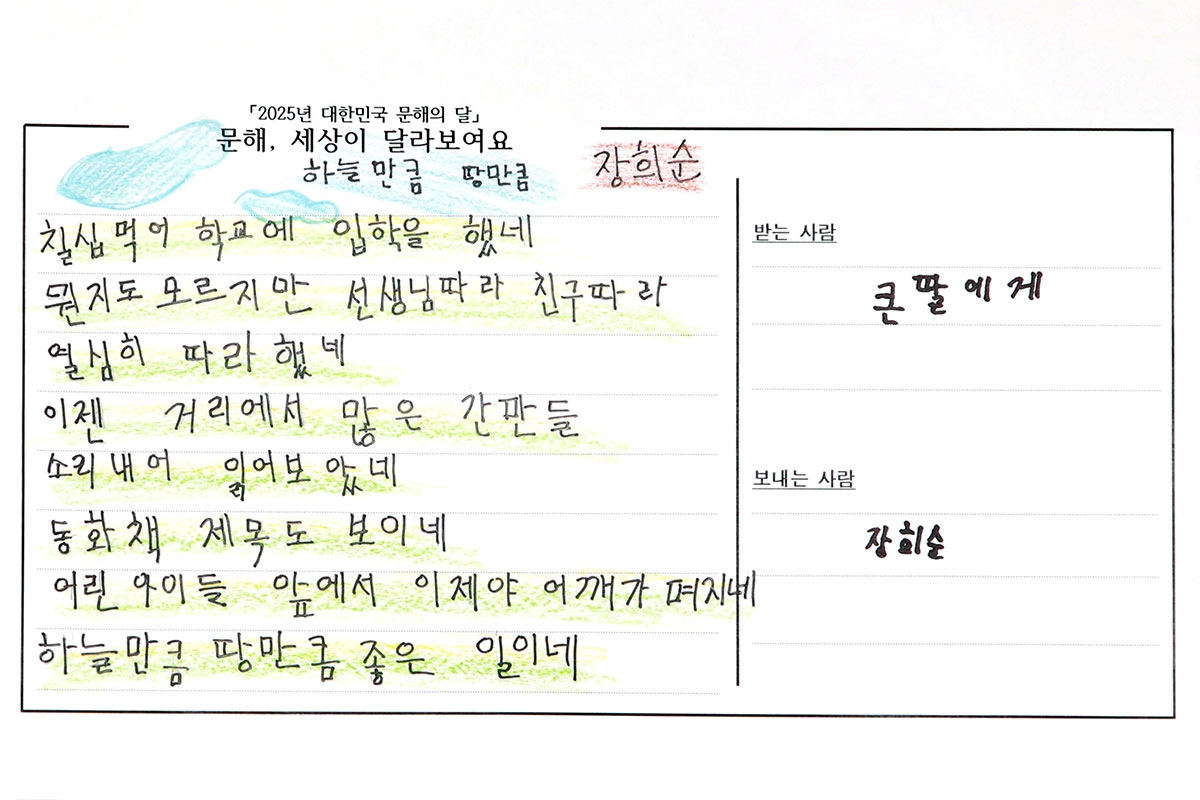 「2025년 대한민국 문해의 달」
문해, 세상이 달라보여요
하늘만큼 땅만큼 장희순
칠십먹어 학교에 입학을 했네
뭔지도 모르지만 선생님따라 친구따라
열심히 따라했네
이젠 거리에서 많은 간판들
소리내어 읽어보았네
동화책 제목도 보이네
어린 아이들 앞에서 이제야 어깨가 펴지네
하늘만큼 땅만큼 좋은 일이네
받는 사람
큰딸에게
보내는 사람
장희순